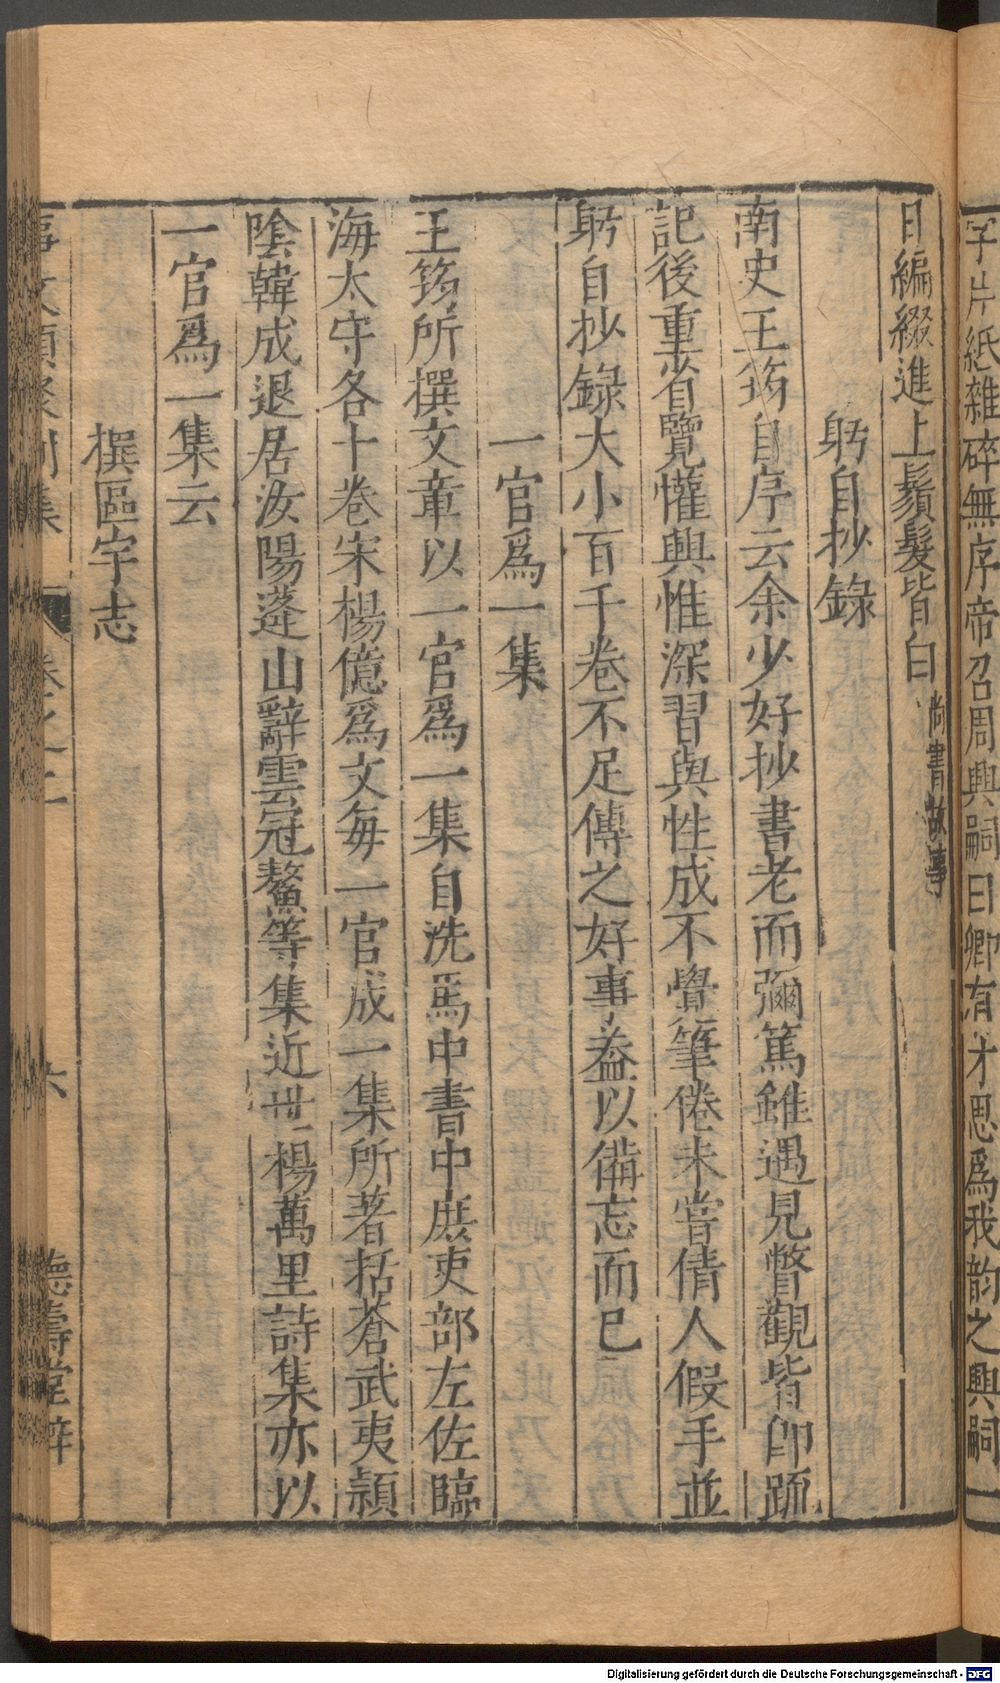 字片紙雜碎無序帝召周興嗣曰卿有才思爲我韵之興嗣
日編綴進上鬚髮皆白尚書故事
躬自抄錄
南史王筠自序云余少好抄書老而彌篤雖遇見瞥觀皆即疏
記後重省覽懽興惟深習與性成不覺筆倦未嘗倩人假手並
躬自抄錄大小百千卷不足傳之好事葢以備忘而已
一官爲一集
王筠所撰文章以一官爲一集自洗馬中書中庶吏部左佐臨
海太守各十卷宋楊億爲文每一官成一集所著括蒼武夷頴
陰韓成退居汝陽蓬山辭雲冠鰲等集近世楊萬里詩集亦以
一官爲一集云
撰區宇志
事文類聚別集 卷之二 六 德壽堂梓
Digitalisierung gefördert durch die Deutsche Forschungsgemeinschaft - DFG